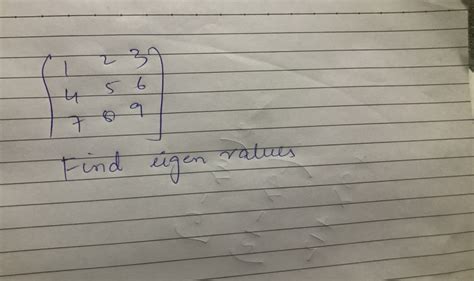 1 2 3
4 5 6
7 8 9
Find eigen values